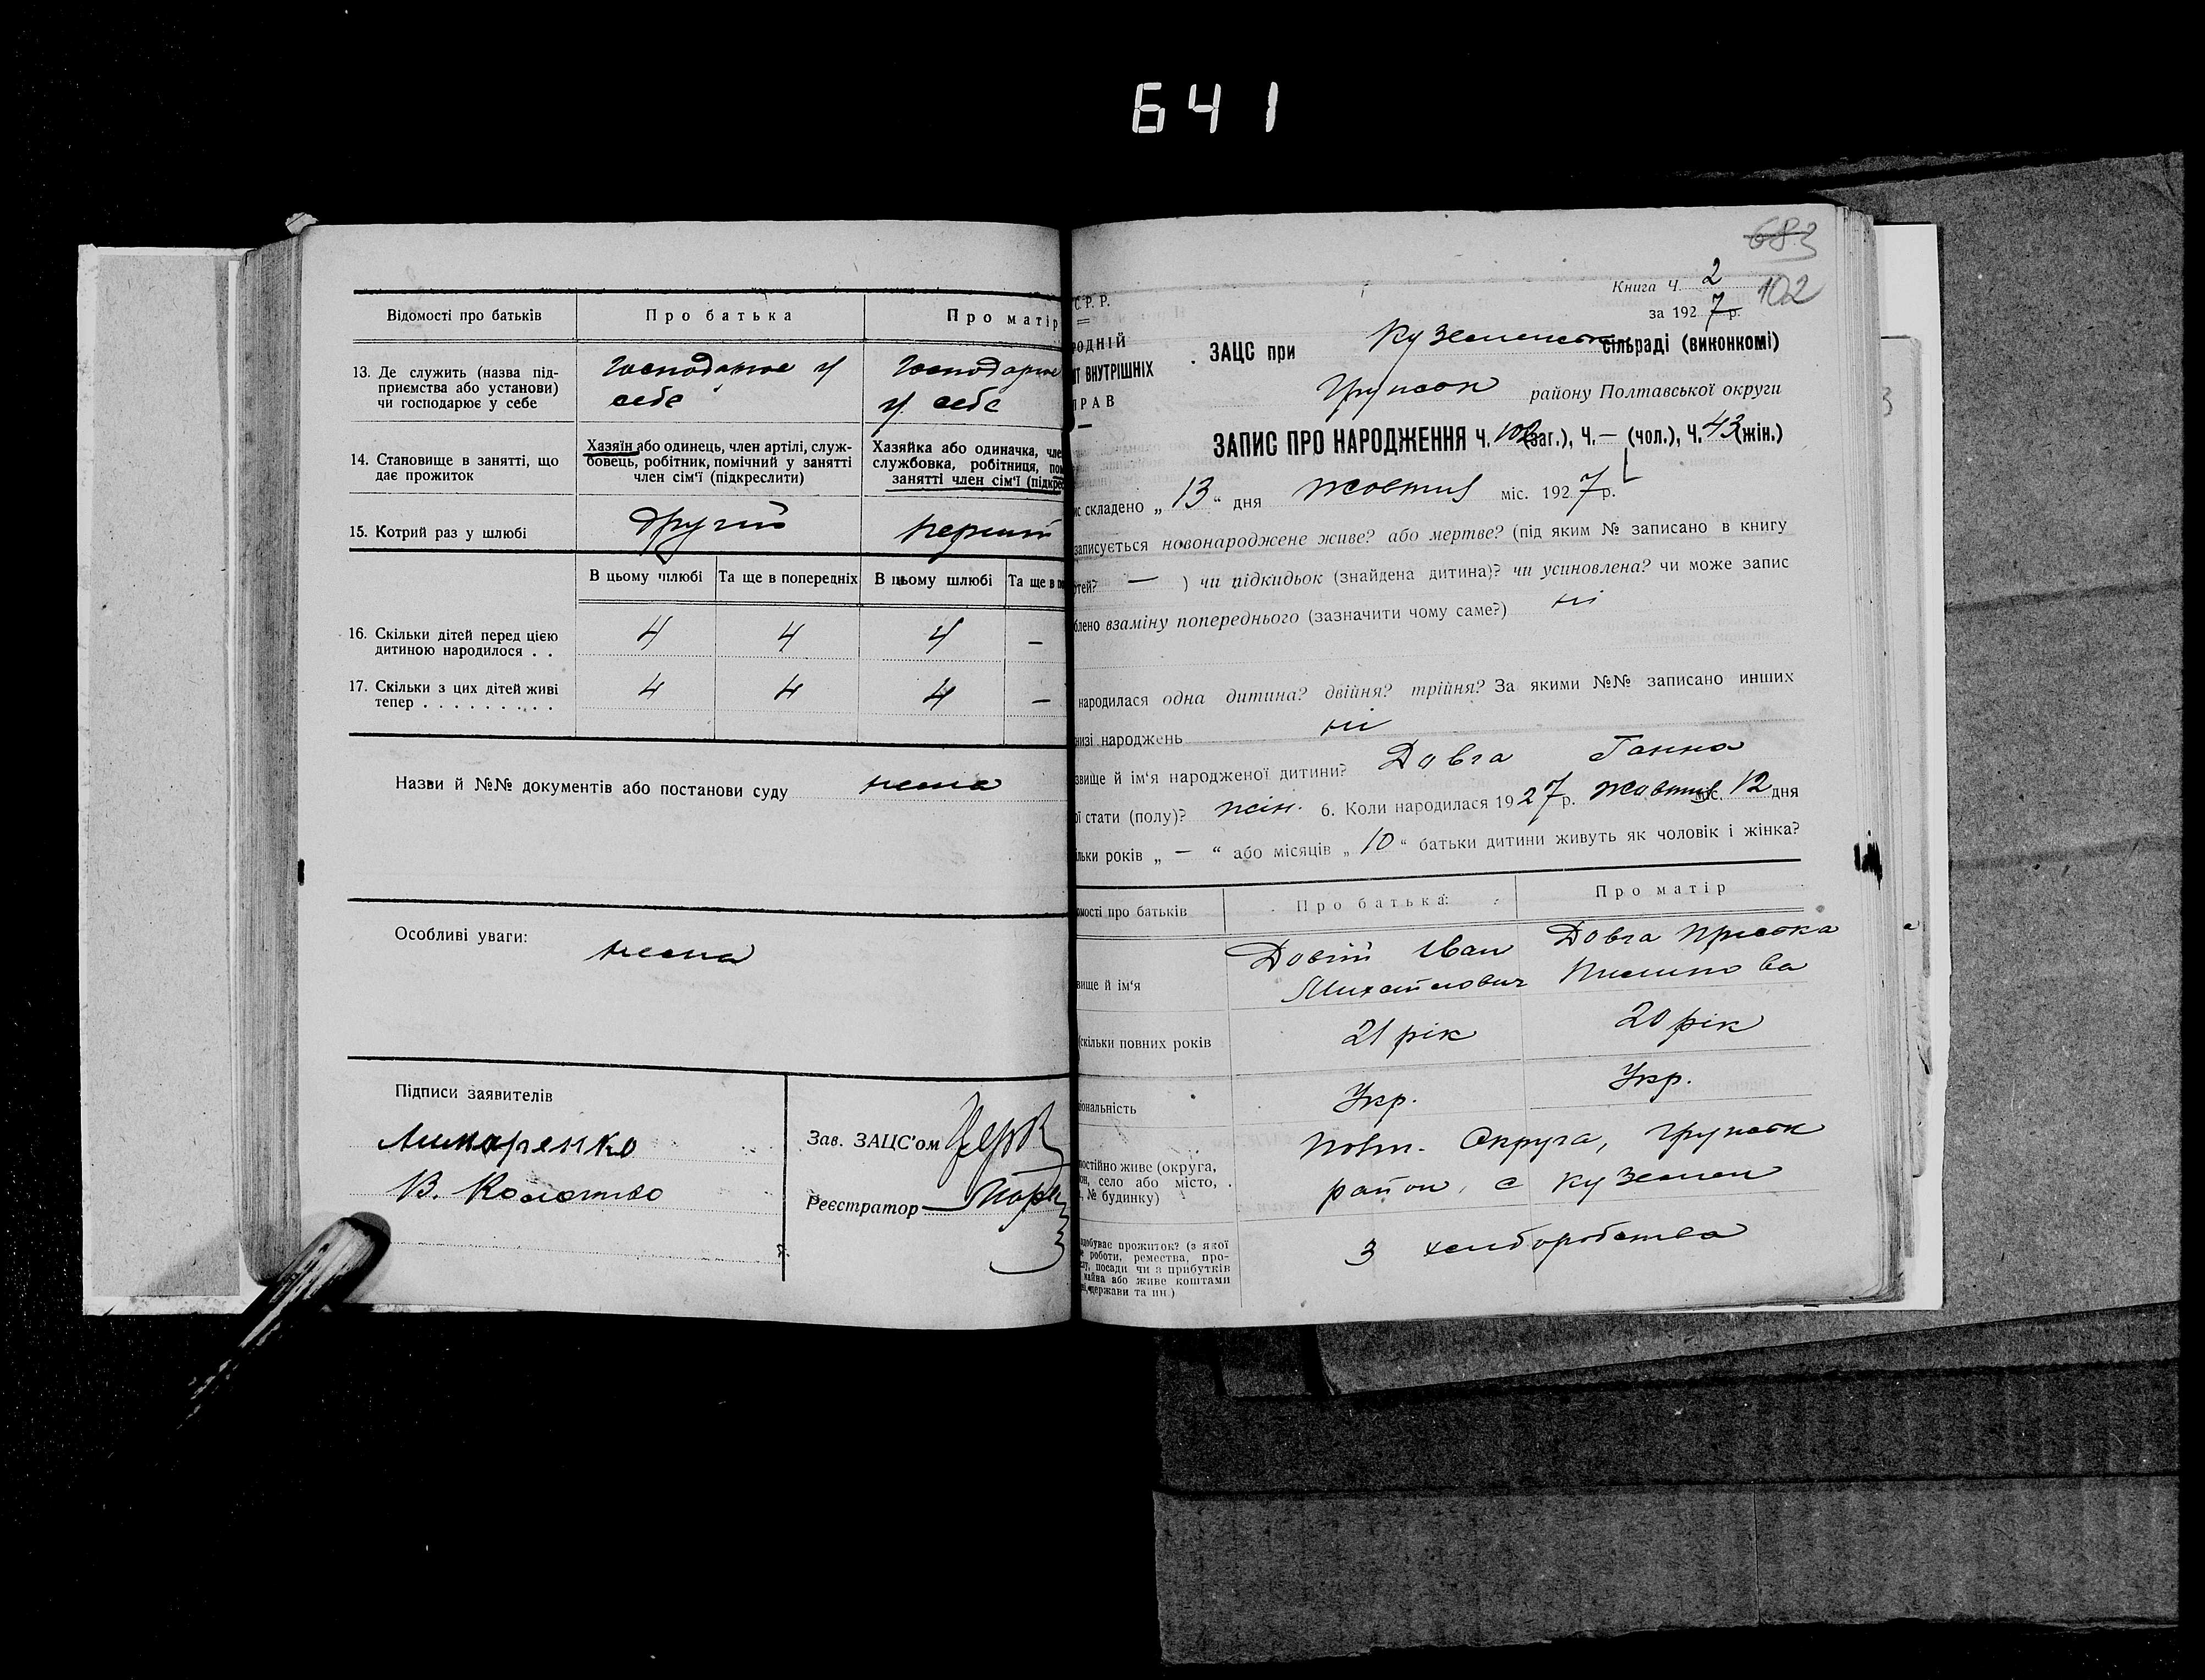 641
Відомості про батьків
Про батька
Про матір
13. Де служить (назва під-
приємства або установи)
чи господарює у себе
Господарює у
себе
Господарює
у себе
14. Становище в занятті, що
дає прожиток
Хазяїн або одинець, член артілі, служ-
бовець, робітник, помічний у занятті
член сім'ї (підкреслити)
Хазяйка або одиначка, чле
службовка, робітниця, пом
занятті член сім'ї (підкрес
15. Котрий раз у шлюбі
другий
перший
В цьому шлюбі
Та ще в попередніх
В цьому шлюбі
Та ще в по
16. Скільки дітей перед цією
дитиною народилося . .
4 4 4 —
17. Скільки з цих дітей живі
тепер . . . . . . . . . .
4 4 4 —
Назви й №№ документів або постанови суду нема
Особливі уваги:
нема
Підписи заявителів
В.
Зав. ЗАЦС'ом
Реєстратор
683
102
Книга Ч. 2
за 1927 р.
С. Р. Р.
РОДНІЙ
ІТ ВНУТРІШНІХ
ПРАВ
ЗАЦС при Куземенськ сільраді (виконкомі)
Грунськ району Полтавської округи
ЗАПИС ПРО НАРОДЖЕННЯ Ч. 102 (заг.), Ч. — (чол.), Ч. 43 (жін.)
ис складено „ 13 “ дня жовтня міс. 1927 р.
записується новонароджене живе? або мертве? (під яким № записано в книгу
ртей? — ) чи підкидьок (знайдена дитина)? чи усиновлена? чи може запис
блено взаміну попереднього (зазначити чому саме?) ні
народилася одна дитина? двійня? трійня? За якими №№ записано инших
низі народжень ні
звище й ім'я народженої дитини? Довга Ганна
ої стати (полу)? жін. 6. Коли народилася 1927 р. жовтня міс. 12 дня
ільки років „ — “ або місяців „ 10 “ батьки дитини живуть як чоловік і жінка?
омості про батьків
Про батька:
Про матір
вище й ім'я
Довгий Іван
Михайлович
Довга Пріська
скільки повних років
21 рік
20 рік
іональність
Укр.
Укр.
постійно живе (округа,
он, село або місто,
, № будинку)
Полт. Округа, Грунськ
район, с Куземен
здобуває прожиток? (з якої
е роботи, ремества, про-
су, посади чи з прибутків
майна або живе коштами
ні, держави та ин.)
З хліборобства